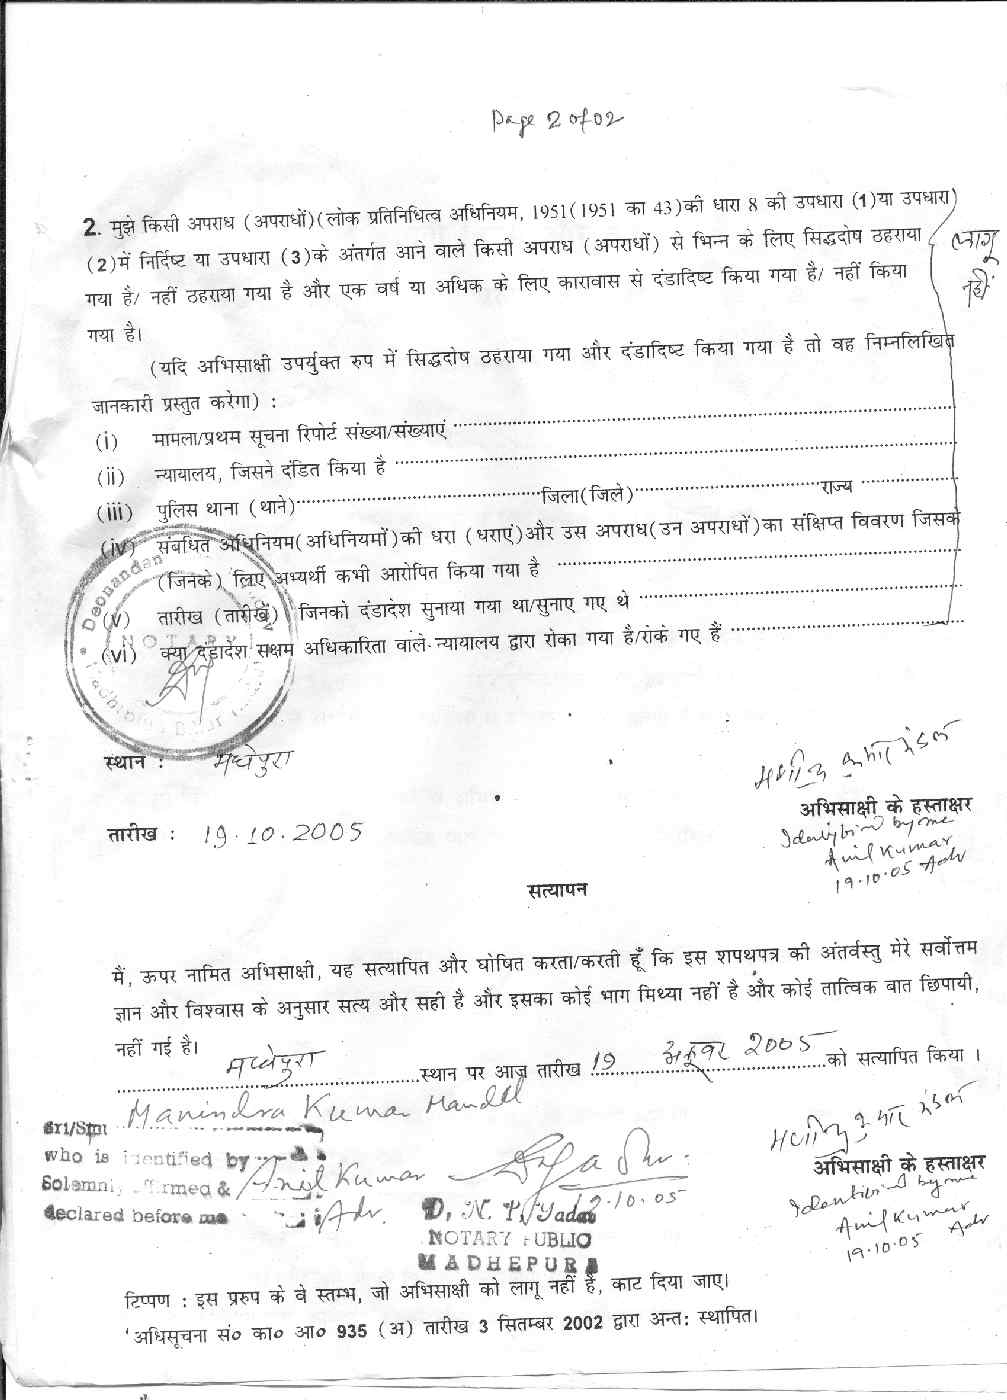 Page 2 of 02
2. मुझे किसी अपराध (अपराधों)(लोक प्रतिनिधित्व अधिनियम, 1951(1951 का 43)की धारा 8 की उपधारा (1)या उपधारा)
(2)में निर्दिष्ट या उपधारा (3)के अंतर्गत आने वाले किसी अपराध (अपराधों) से भिन्न के लिए सिद्धदोष ठहराया
लागू
गया है/ नहीं ठहराया गया है और एक वर्ष या अधिक के लिए कारावास से दंडादिष्ट किया गया है/ नहीं किया
नहीं
गया है।
(यदि अभिसाक्षी उपर्युक्त रुप में सिद्धदोष ठहराया गया और दंडादिष्ट किया गया है तो वह निम्नलिखित
जानकारी प्रस्तुत करेगा) :
(i) मामला/प्रथम सूचना रिपोर्ट संख्या/संख्याएं
(ii) न्यायालय, जिसने दंडित किया है
(iii) पुलिस थाना (थाने) जिला(जिले) राज्य
(iv) संबधित अधिनियम(अधिनियमों)की धरा (धराएं)और उस अपराध(उन अपराधों)का संक्षिप्त विवरण जिसके
(जिनके) लिए अभ्यर्थी कभी आरोपित किया गया है
(v) तारीख (तारीखें) जिनको दंडादेश सुनाया गया था/सुनाए गए थे
(vi) क्या दंडादेश सक्षम अधिकारिता वाले न्यायालय द्वारा रोका गया है/रोके गए हैं
Deonandan
NOTARY
स्थान : मधेपुरा
मणीन्द्र कुमार मंडल
अभिसाक्षी के हस्ताक्षर
तारीख : 19.10.2005
by me
Anil Kumar
19.10.05 Adv
सत्यापन
मैं, ऊपर नामित अभिसाक्षी, यह सत्यापित और घोषित करता/करती हूँ कि इस शपथपत्र की अंतर्वस्तु मेरे सर्वोत्तम
ज्ञान और विश्वास के अनुसार सत्य और सही है और इसका कोई भाग मिथ्या नहीं है और कोई तात्विक बात छिपायी,
नहीं गई है।
मधेपुरा स्थान पर आज तारीख 19 अक्टूबर 2005 को सत्यापित किया ।
Sri/Smt Manindra Kumar Mandal
मणीन्द्र कुमार मंडल
who is identified by Anil Kumar
अभिसाक्षी के हस्ताक्षर
Solemnly affirmed &
declared before me Adv.
D. N. P. Yadav
NOTARY PUBLIC
MADHEPURA
by me
Anil Kumar
19.10.05 Adv
टिप्पण : इस प्ररुप के वे स्तम्भ, जो अभिसाक्षी को लागू नहीं हैं, काट दिया जाए।
'अधिसूचना सं० का० आ० 935 (अ) तारीख 3 सितम्बर 2002 द्वारा अन्त: स्थापित।